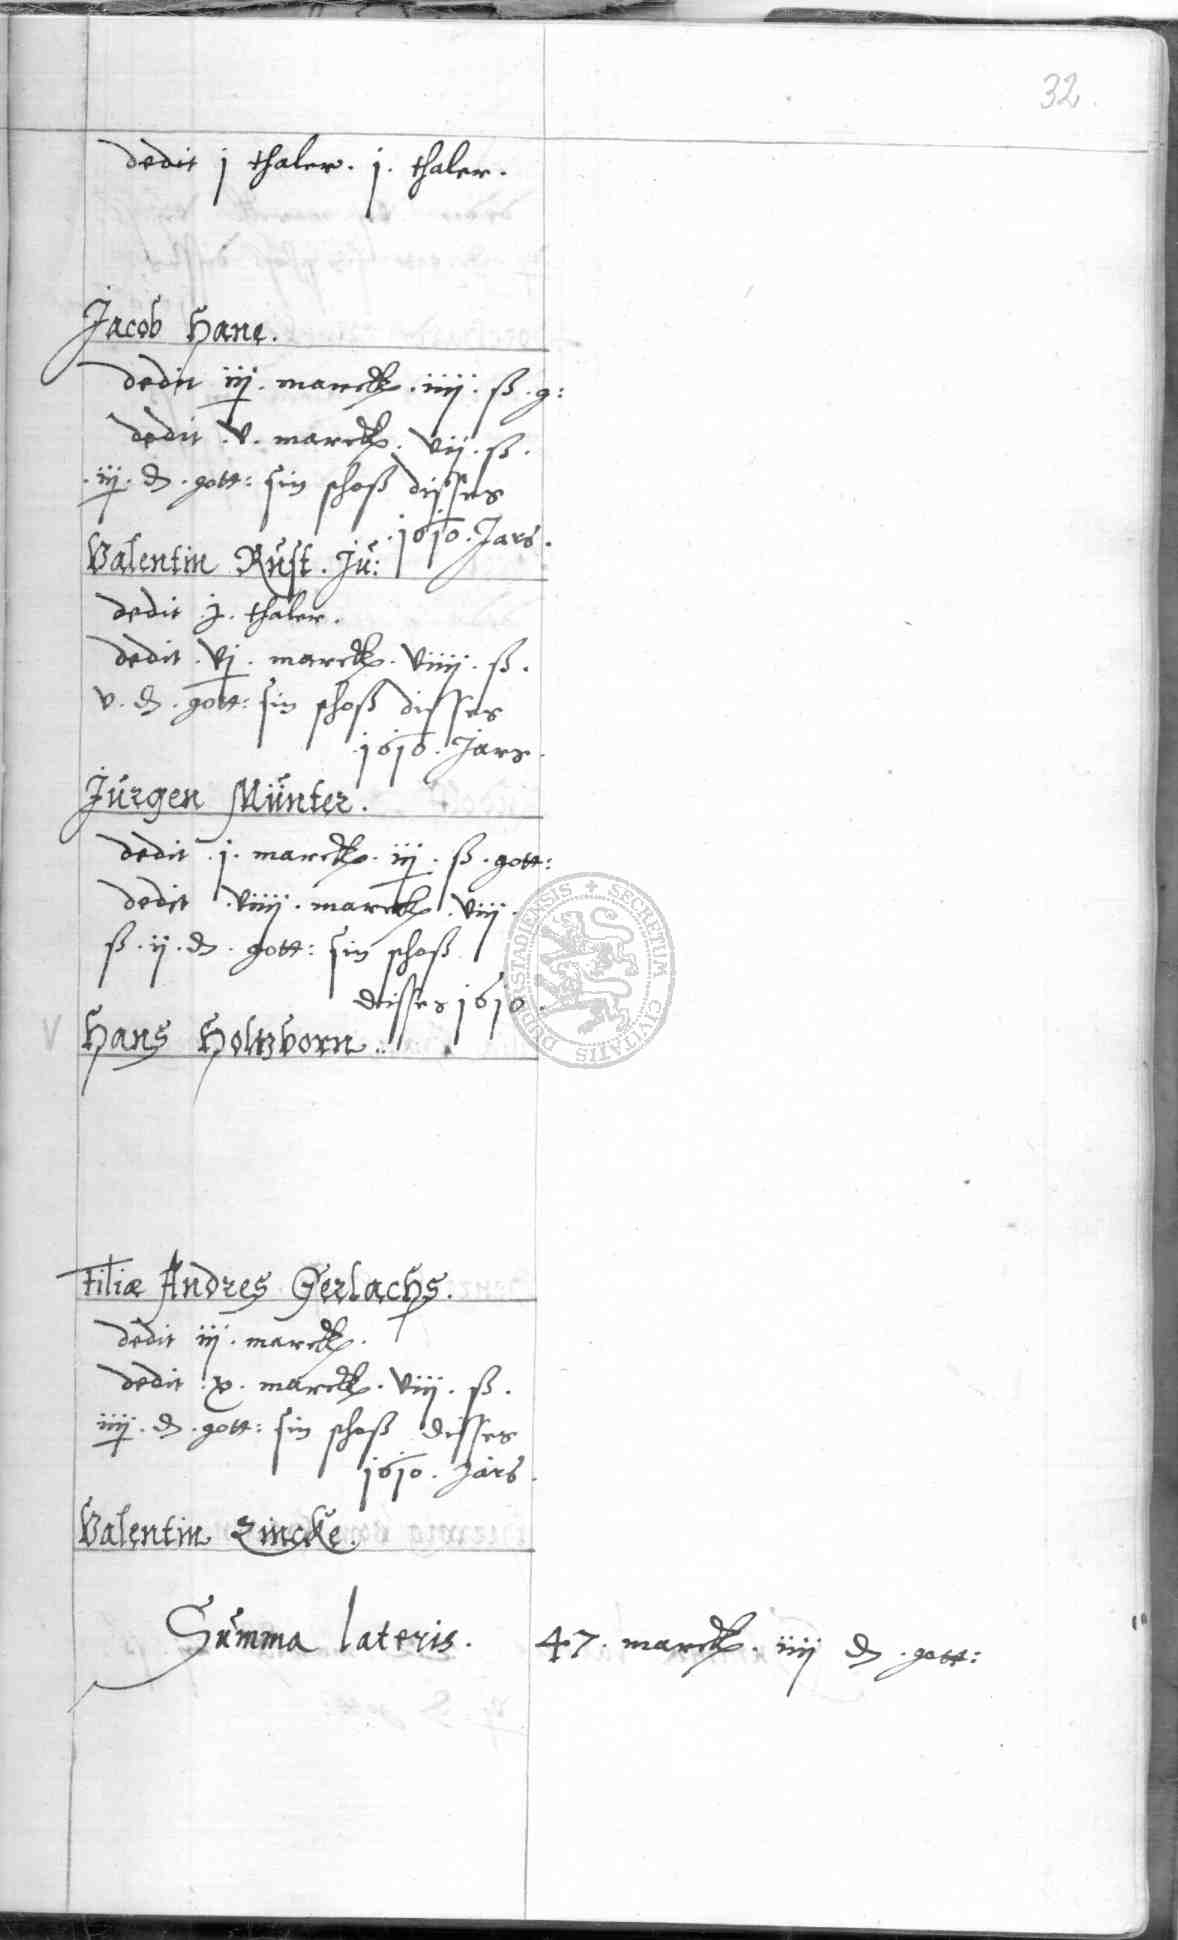 32.
dedit j thaler. j. thaler.
Jacob Hane.
dedit iij. marck. iiij. ß. g:
dedit. v. marck. vij. ß.
.iij. d. gott: sin schoß disses
.1610. Jars.
Valentin Rust. Ju:
dedit j. thaler.
dedit. vj. marck. viiij. ß.
v. d. gott: sin schoß disses
.1610. Jars.
Jurgen Munter.
dedit .j. marck. iij. ß. gott:
dedit .viiij. marck. viij.
ß. ij. d. gott: sin schoß
disses 1610.
V Hans Holtzborn.
filiæ Andres Gerlachs.
dedit iij. marck.
dedit .x. marck. viij. ß.
iiij. d. gott: sin schoß disses
1610. Jars.
Valentin Zincke.
Summa lateris. 47. marck. iiij d. gott:
SECRETUM CIVITATIS DUDERSTADIENSIS